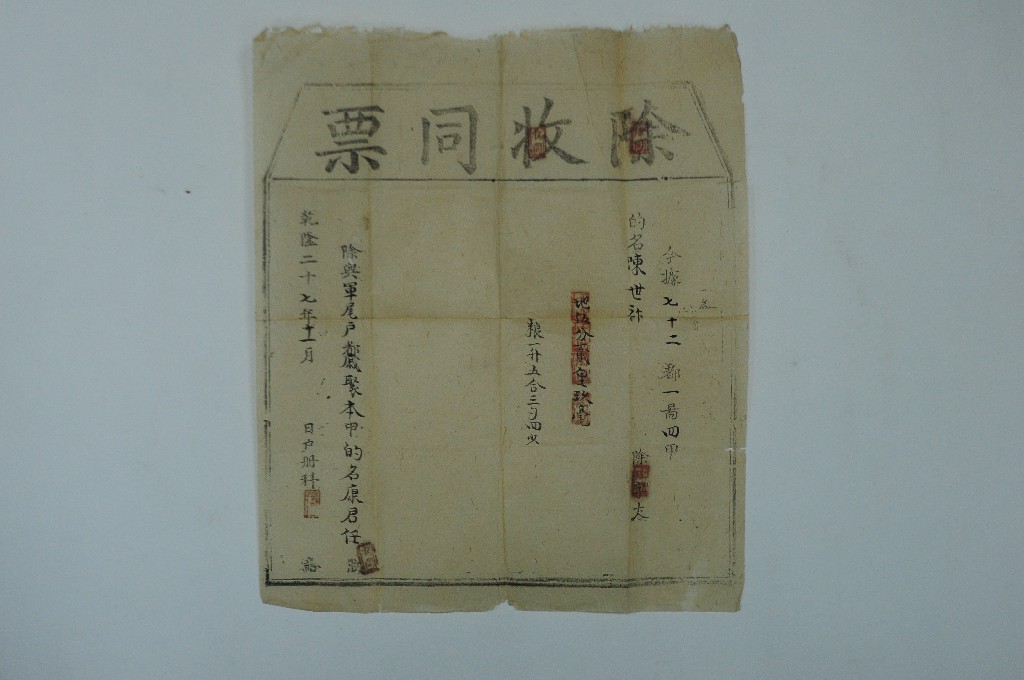 除收同票
今據七十二都一畨四甲
的名陳世祚 除 大
地伍分貳重玖毫
粮一升五合三勺四火
除與軍尾戶戴聚本甲的名康君任
乾隆二十七年十一月 日戶册科